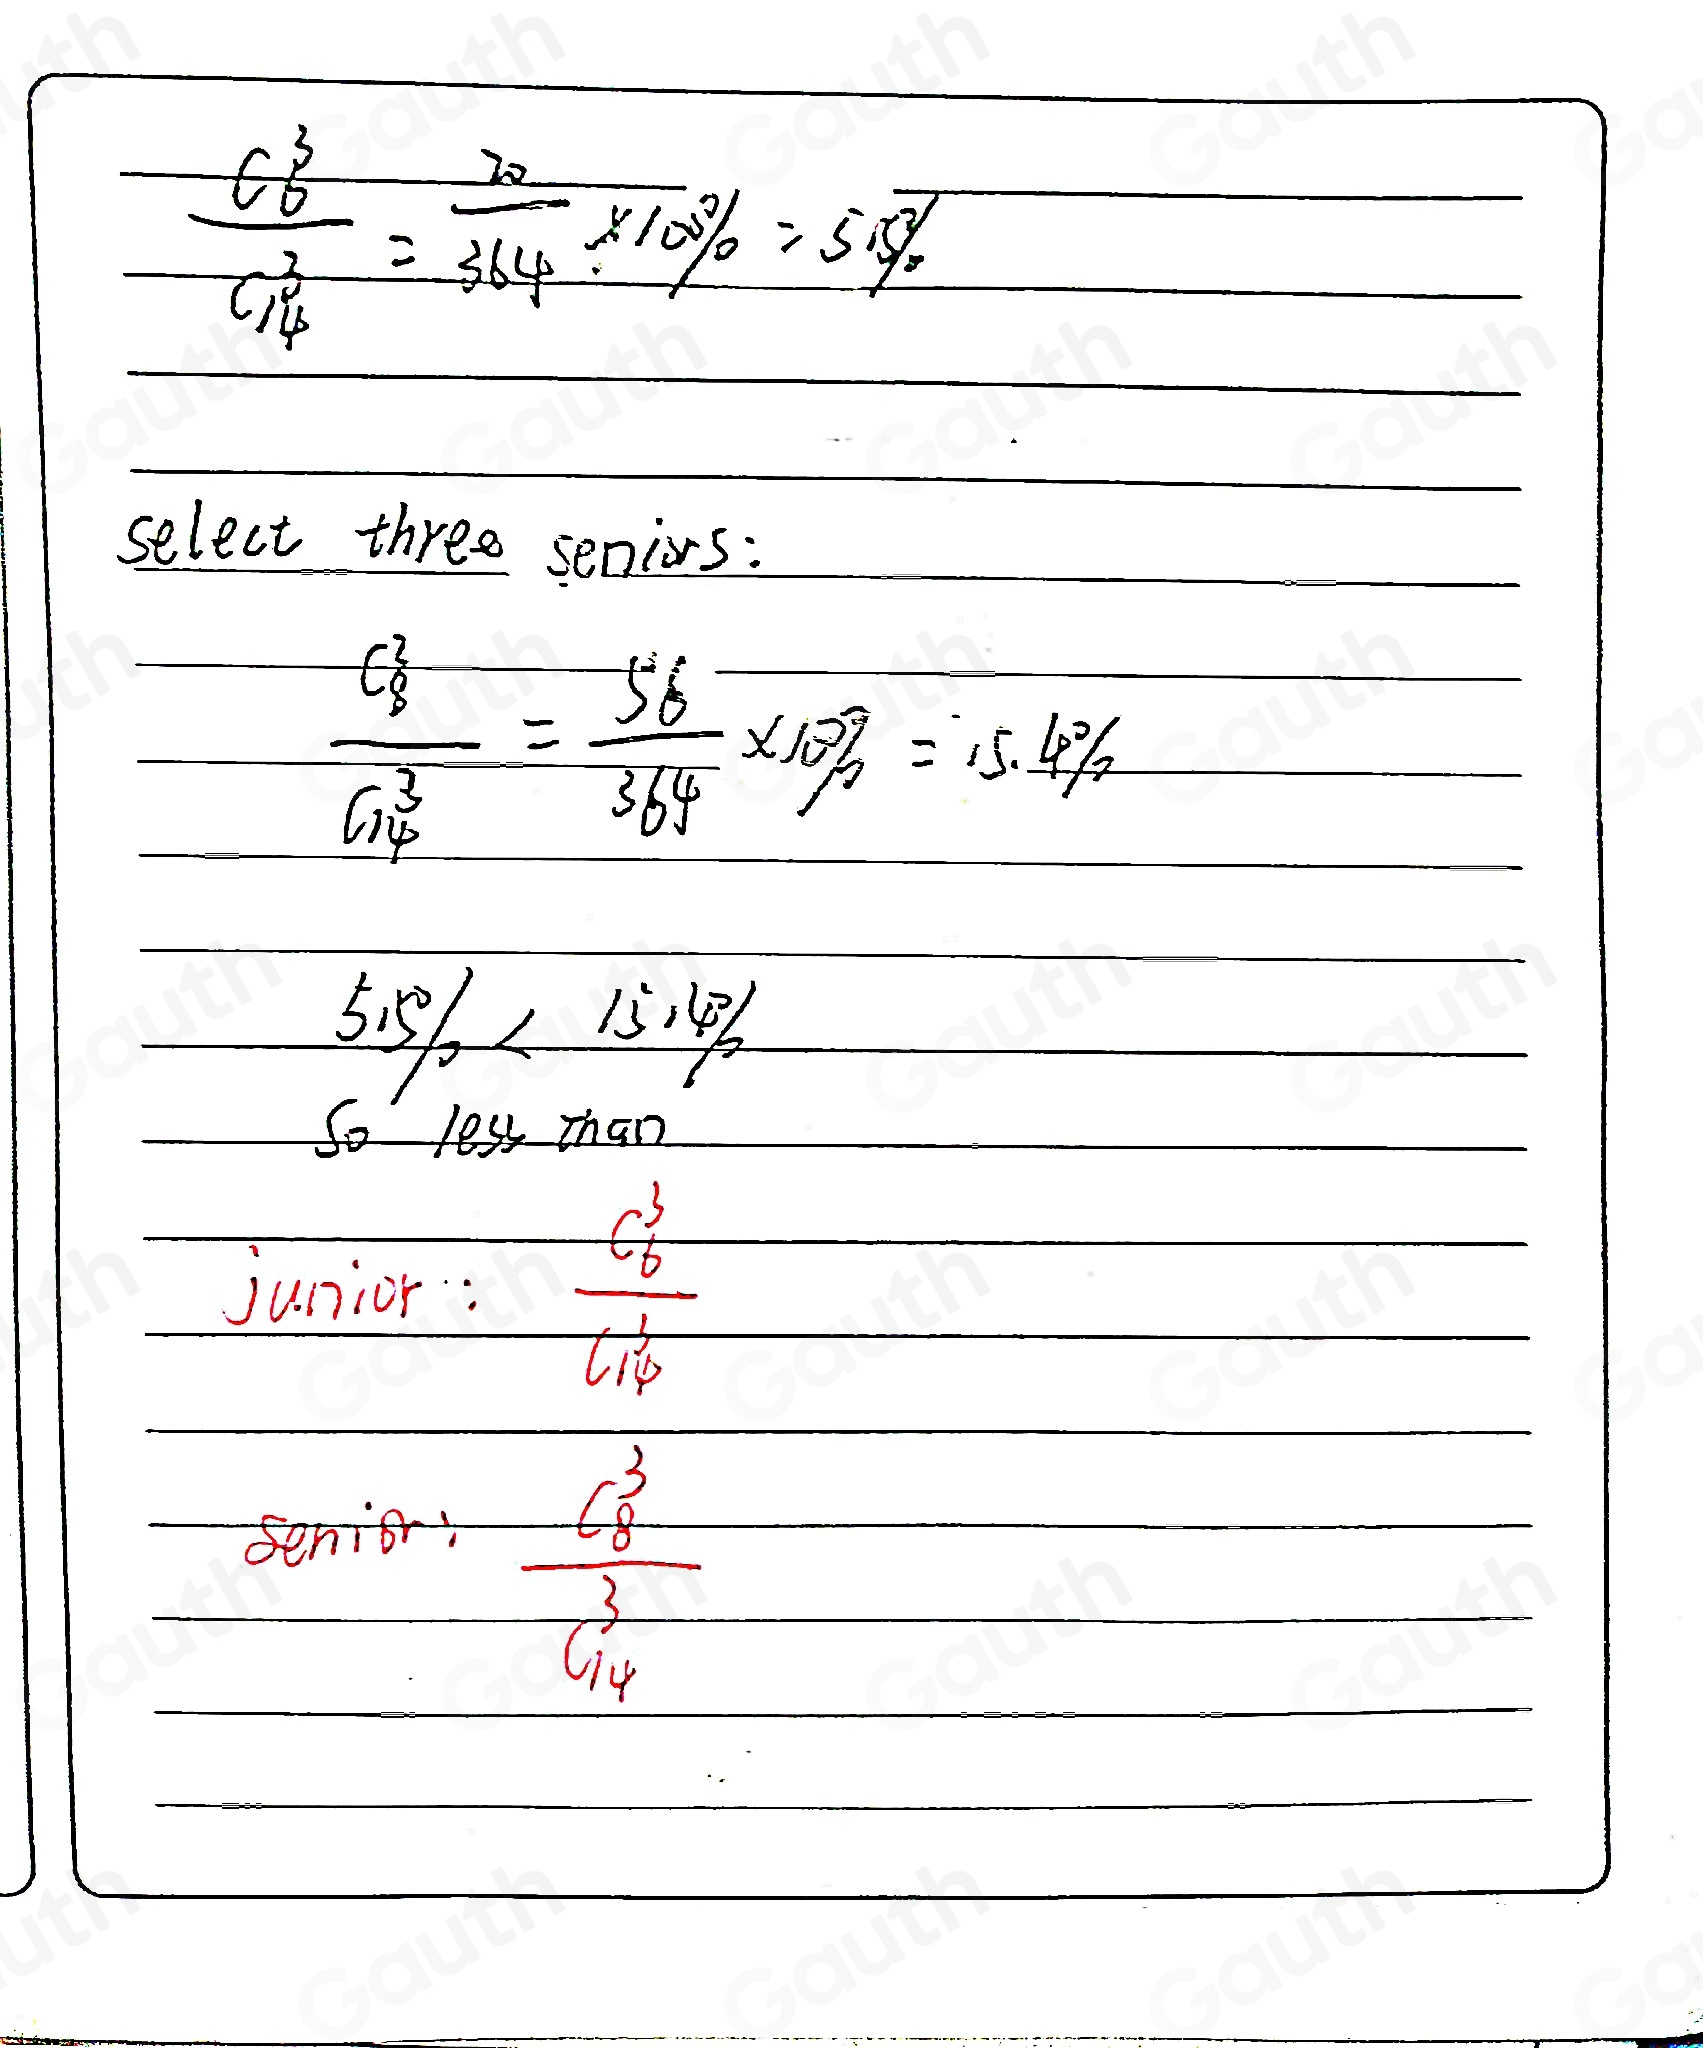 C₆³ / C₁₄³ = 20 / 364 × 100% = 5.5%
select three seniors:
C₈³ / C₁₄³ = 56 / 364 × 100% = 15.4%
5.5% < 15.4%
So less than
junior: C₆³ / C₁₄³
senior: C₈³ / C₁₄³
Gauth